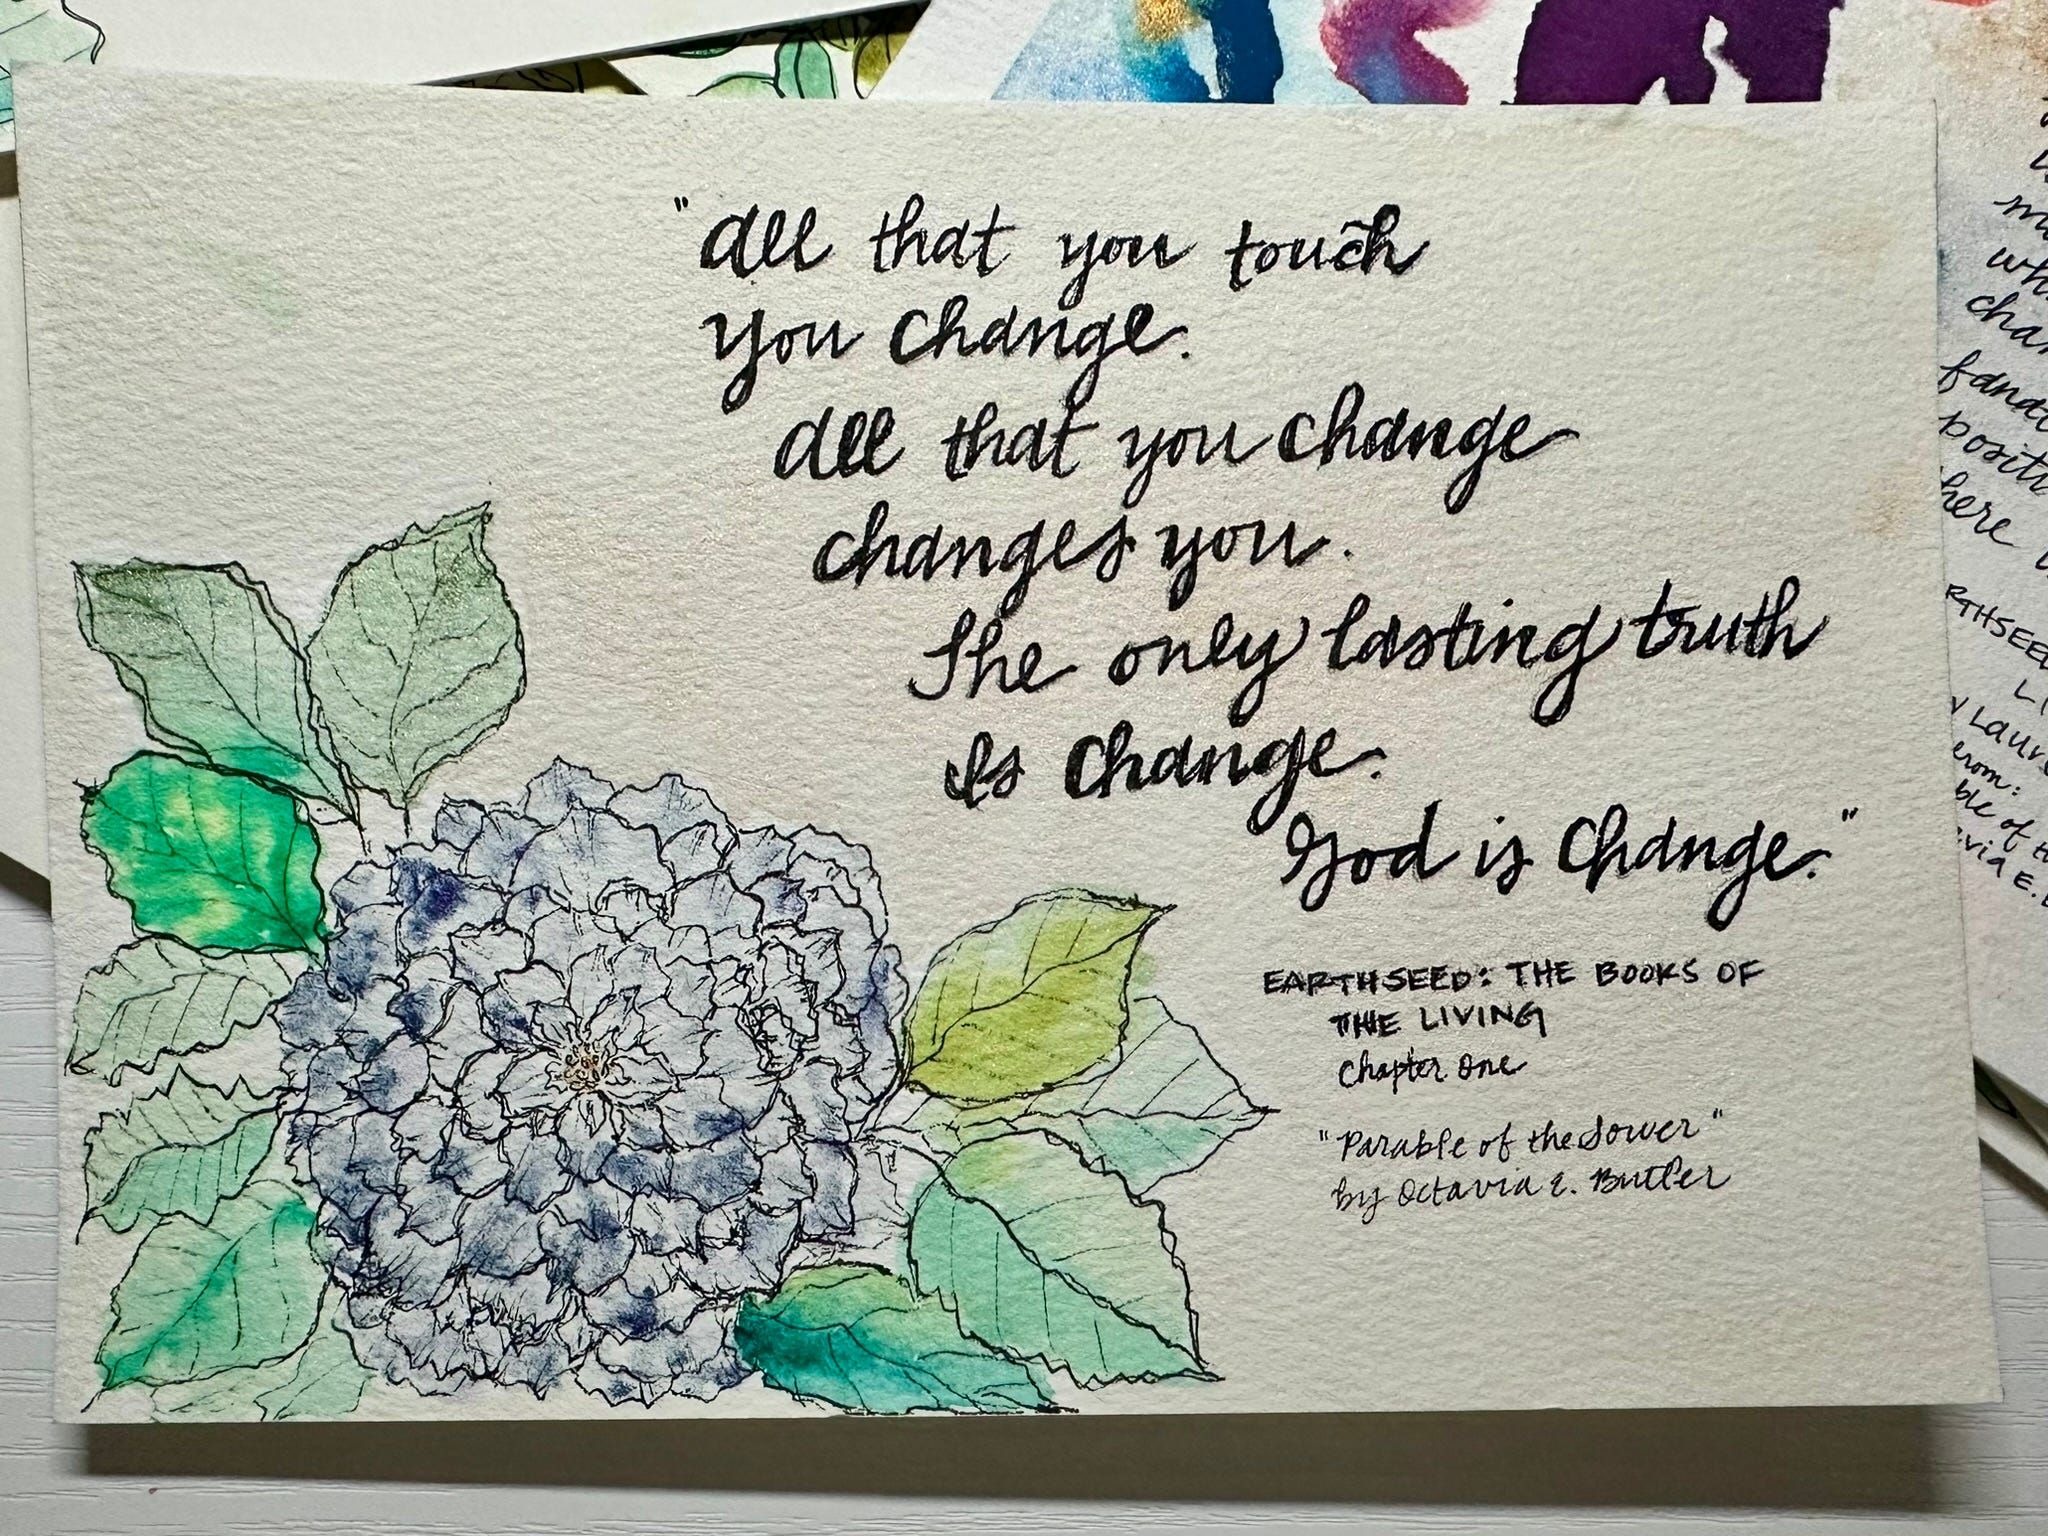 "All that you touch
You Change.
All that you Change
Changes you.
The only lasting truth
Is Change.
God is Change."
EARTHSEED: THE BOOKS OF
THE LIVING
Chapter One
"Parable of the Sower"
by Octavia E. Butler
fanat
positi
here
RTHSEED
Laure
from:
ble of th
via E. B